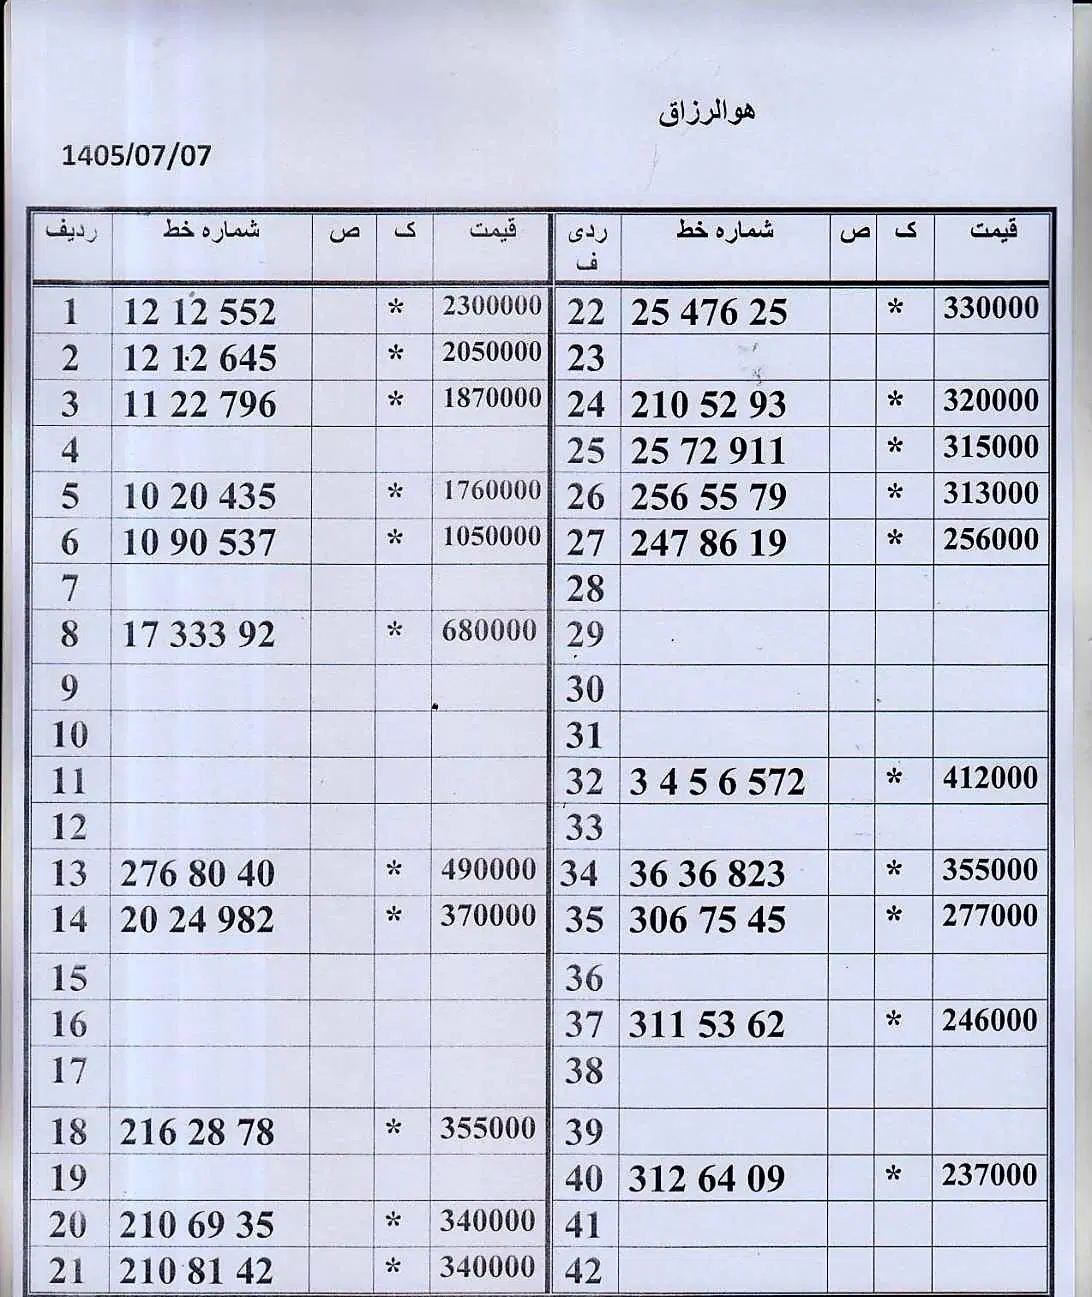 هوالرزاق
1405/07/07
ردیف شماره خط ص ک قیمت ردی شماره خط ص ک قیمت
ف
1 12 12 552 * 2300000 22 25 476 25 * 330000
2 12 12 645 * 2050000 23
3 11 22 796 * 1870000 24 210 52 93 * 320000
4 25 25 72 911 * 315000
5 10 20 435 * 1760000 26 256 55 79 * 313000
6 10 90 537 * 1050000 27 247 86 19 * 256000
7 28
8 17 333 92 * 680000 29
9 30
10 31
11 32 3 4 5 6 572 * 412000
12 33
13 276 80 40 * 490000 34 36 36 823 * 355000
14 20 24 982 * 370000 35 306 75 45 * 277000
15 36
16 37 311 53 62 * 246000
17 38
18 216 28 78 * 355000 39
19 40 312 64 09 * 237000
20 210 69 35 * 340000 41
21 210 81 42 * 340000 42